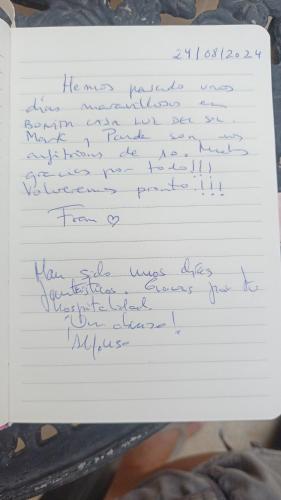 24/08/2024
Hemos pasado unos
días maravillosos en
BONITA CASA LUZ DEL SOL.
Mark y son unos
anfitriones de 10. Muchas
gracias por todo!!!
Volveremos pronto!!!
Fran ♡
Han sido unos días
fantásticos. Gracias por tu
hospitalidad
¡Un abrazo!
Alfonso